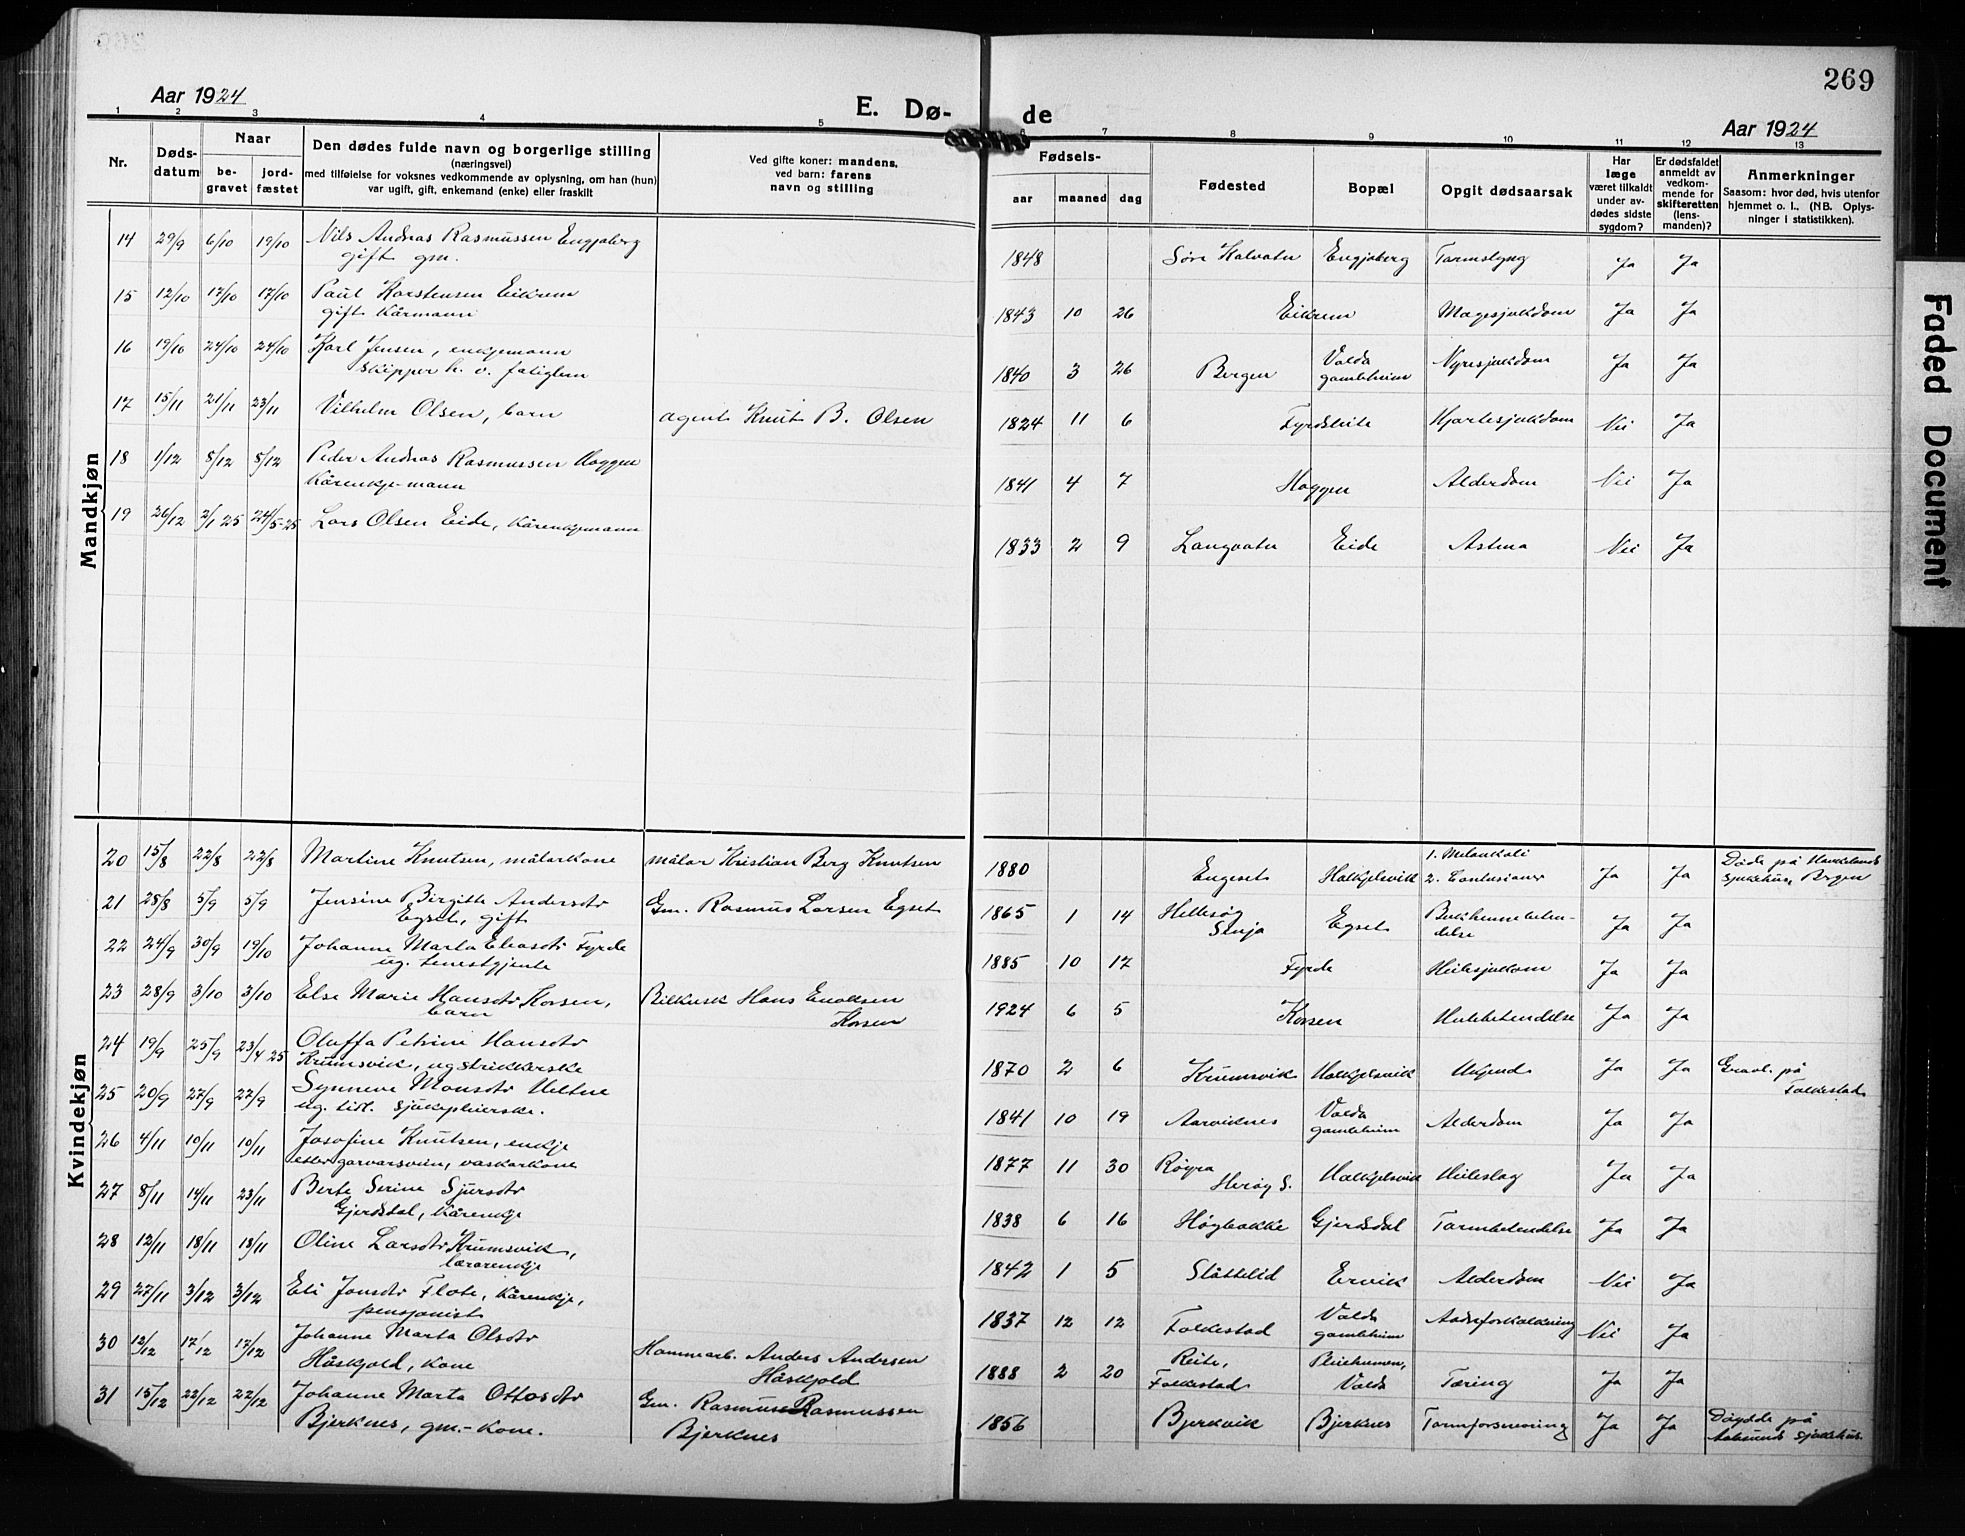 269
Aar 1924
E. Dø-
de
Aar 1924
1 2 3 4 5 6 7 8 9 10 11 12 13
Nr.
Døds-
datum
Naar
be-
gravet
jord-
fæstet
Den dødes fulde navn og borgerlige stilling
(næringsvei)
med tilføielse for voksnes vedkommende av oplysning, om han (hun)
var ugift, gift, enkemand (enke) eller fraskilt
Ved gifte koner: mandens,
ved barn: farens
navn og stilling
Fødsels-
aar
maaned
dag
Fødested
Bopæl
Opgit dødsaarsak
Har
læge
været tilkaldt
under av-
dødes sidste
sygdom?
Er dødsfaldet
anmeldt av
vedkom-
mende for
skifteretten
(lens-
manden)?
Anmerkninger
Saasom: hvor død, hvis utenfor
hjemmet o. l., (NB. Oplys-
ninger i statistikken).
Mandkjøn
14 29/9 6/10 19/10 Nils Andras Rasmussen Engjaberg 1848 Søre Halvatn Engjaberg Tarmslyng Ja Ja
gift gm.
15 12/10 17/10 17/10 Paul Karstensen Eikrem 1843 10 26 Eikrem Magesjukdom Ja Ja
gift kårmann
16 19/10 24/10 24/10 Karl Jensen, enkjemann 1840 3 26 Bergen Volda Nyresjukdom Ja Ja
skipper h. v. fatiglem gamleheim
17 15/11 21/11 23/11 Vilhelm Olsen, barn agent Knut B. Olsen 1824 11 6 Fyrdsleite Hjartesjukdom Nei Ja
18 1/12 8/12 8/12 Peder Andras Rasmussen Haggen 1841 4 7 Haggen Alderdom Nei Ja
Kårenkje-mann
19 26/12 2/1 25 24/5-25 Lars Olsen Eide, kårenkjemann 1833 2 9 Langvatn Eide Astma Nei Ja
Kvindekjøn
20 15/8 22/8 22/8 Martine Knutsen, målarkone målar Kristian Berg Knutsen 1880 Engeset Halkjelsvik 1. Melankoli Ja Ja Døde på Haukelands
2. Contusioner sjukehus, Bergen
21 28/8 5/9 5/9 Jensine Birgitte Andersdtr Gm. Rasmus Larsen Egset 1865 1 14 Hellesøy Egset Bukhinnebeten- Ja Ja
Egset, gift Senja delse
22 24/9 30/9 19/10 Johanne Marta Eliasdtr Fyrde 1885 10 17 Fyrde Heilesjukdom Ja Ja
ug. tenestgjente
23 28/9 3/10 3/10 Else Marie Hansdtr Korsen, Bilkusk Hans Enoksen 1924 6 5 Korsen Ja Ja
barn Korsen
24 19/9 25/9 23/4 25 Oluffa Petrine Hansdtr 1870 2 6 Krumsvik Halkjelsvik Ukjend Ja Ja Gravl. på
Krumsvik, ug strikkerske Folkestad
25 20/9 27/9 27/9 Synneve Monsdtr Heltne 1841 10 19 Aarviknes Volda Alderdom Ja Ja
ug. tidl. sjukepleierske. gamleheim
26 4/11 10/11 10/11 Josofine Knutsen, enkje 1877 11 30 Røyra Halkjelsvik Heileslag Ja Ja
etter garvarsvein, vaskarkone Herøy S.
27 8/11 14/11 23/11 Berte Serine Sjursdtr 1838 6 16 Høgbakke Gjerdsdal Tarmbetendelse Ja Ja
Gjerdsdal, Kårenkje
28 12/11 18/11 18/11 Oline Larsdtr Krumsvik, 1842 1 5 Slåttelid Ervik Alderdom Nei Ja
lærarenkje
29 27/11 3/12 3/12 Eli Jonsdtr Flote, kårenkje, 1837 12 12 Folkestad Volda Aadreforkalkning Nei Ja
pensjonist gamleheim
30 12/12 17/12 17/12 Johanne Marta Olsdtr Hammarb. Anders Andersen 1888 2 20 Reite, Pleieheimen, Tæring Ja Ja
Håskjold, kone Håskjold Folkestad Volda
31 15/12 22/12 22/12 Johanne Marta Ottosdtr Gm. Rasmus Rasmussen 1856 Bjerkvik Bjerknes Tarmforsnevring Ja Ja Døydde på
Bjerknes, gm.-kone. Bjerknes Aalesunds sjukehus.
Faded Document